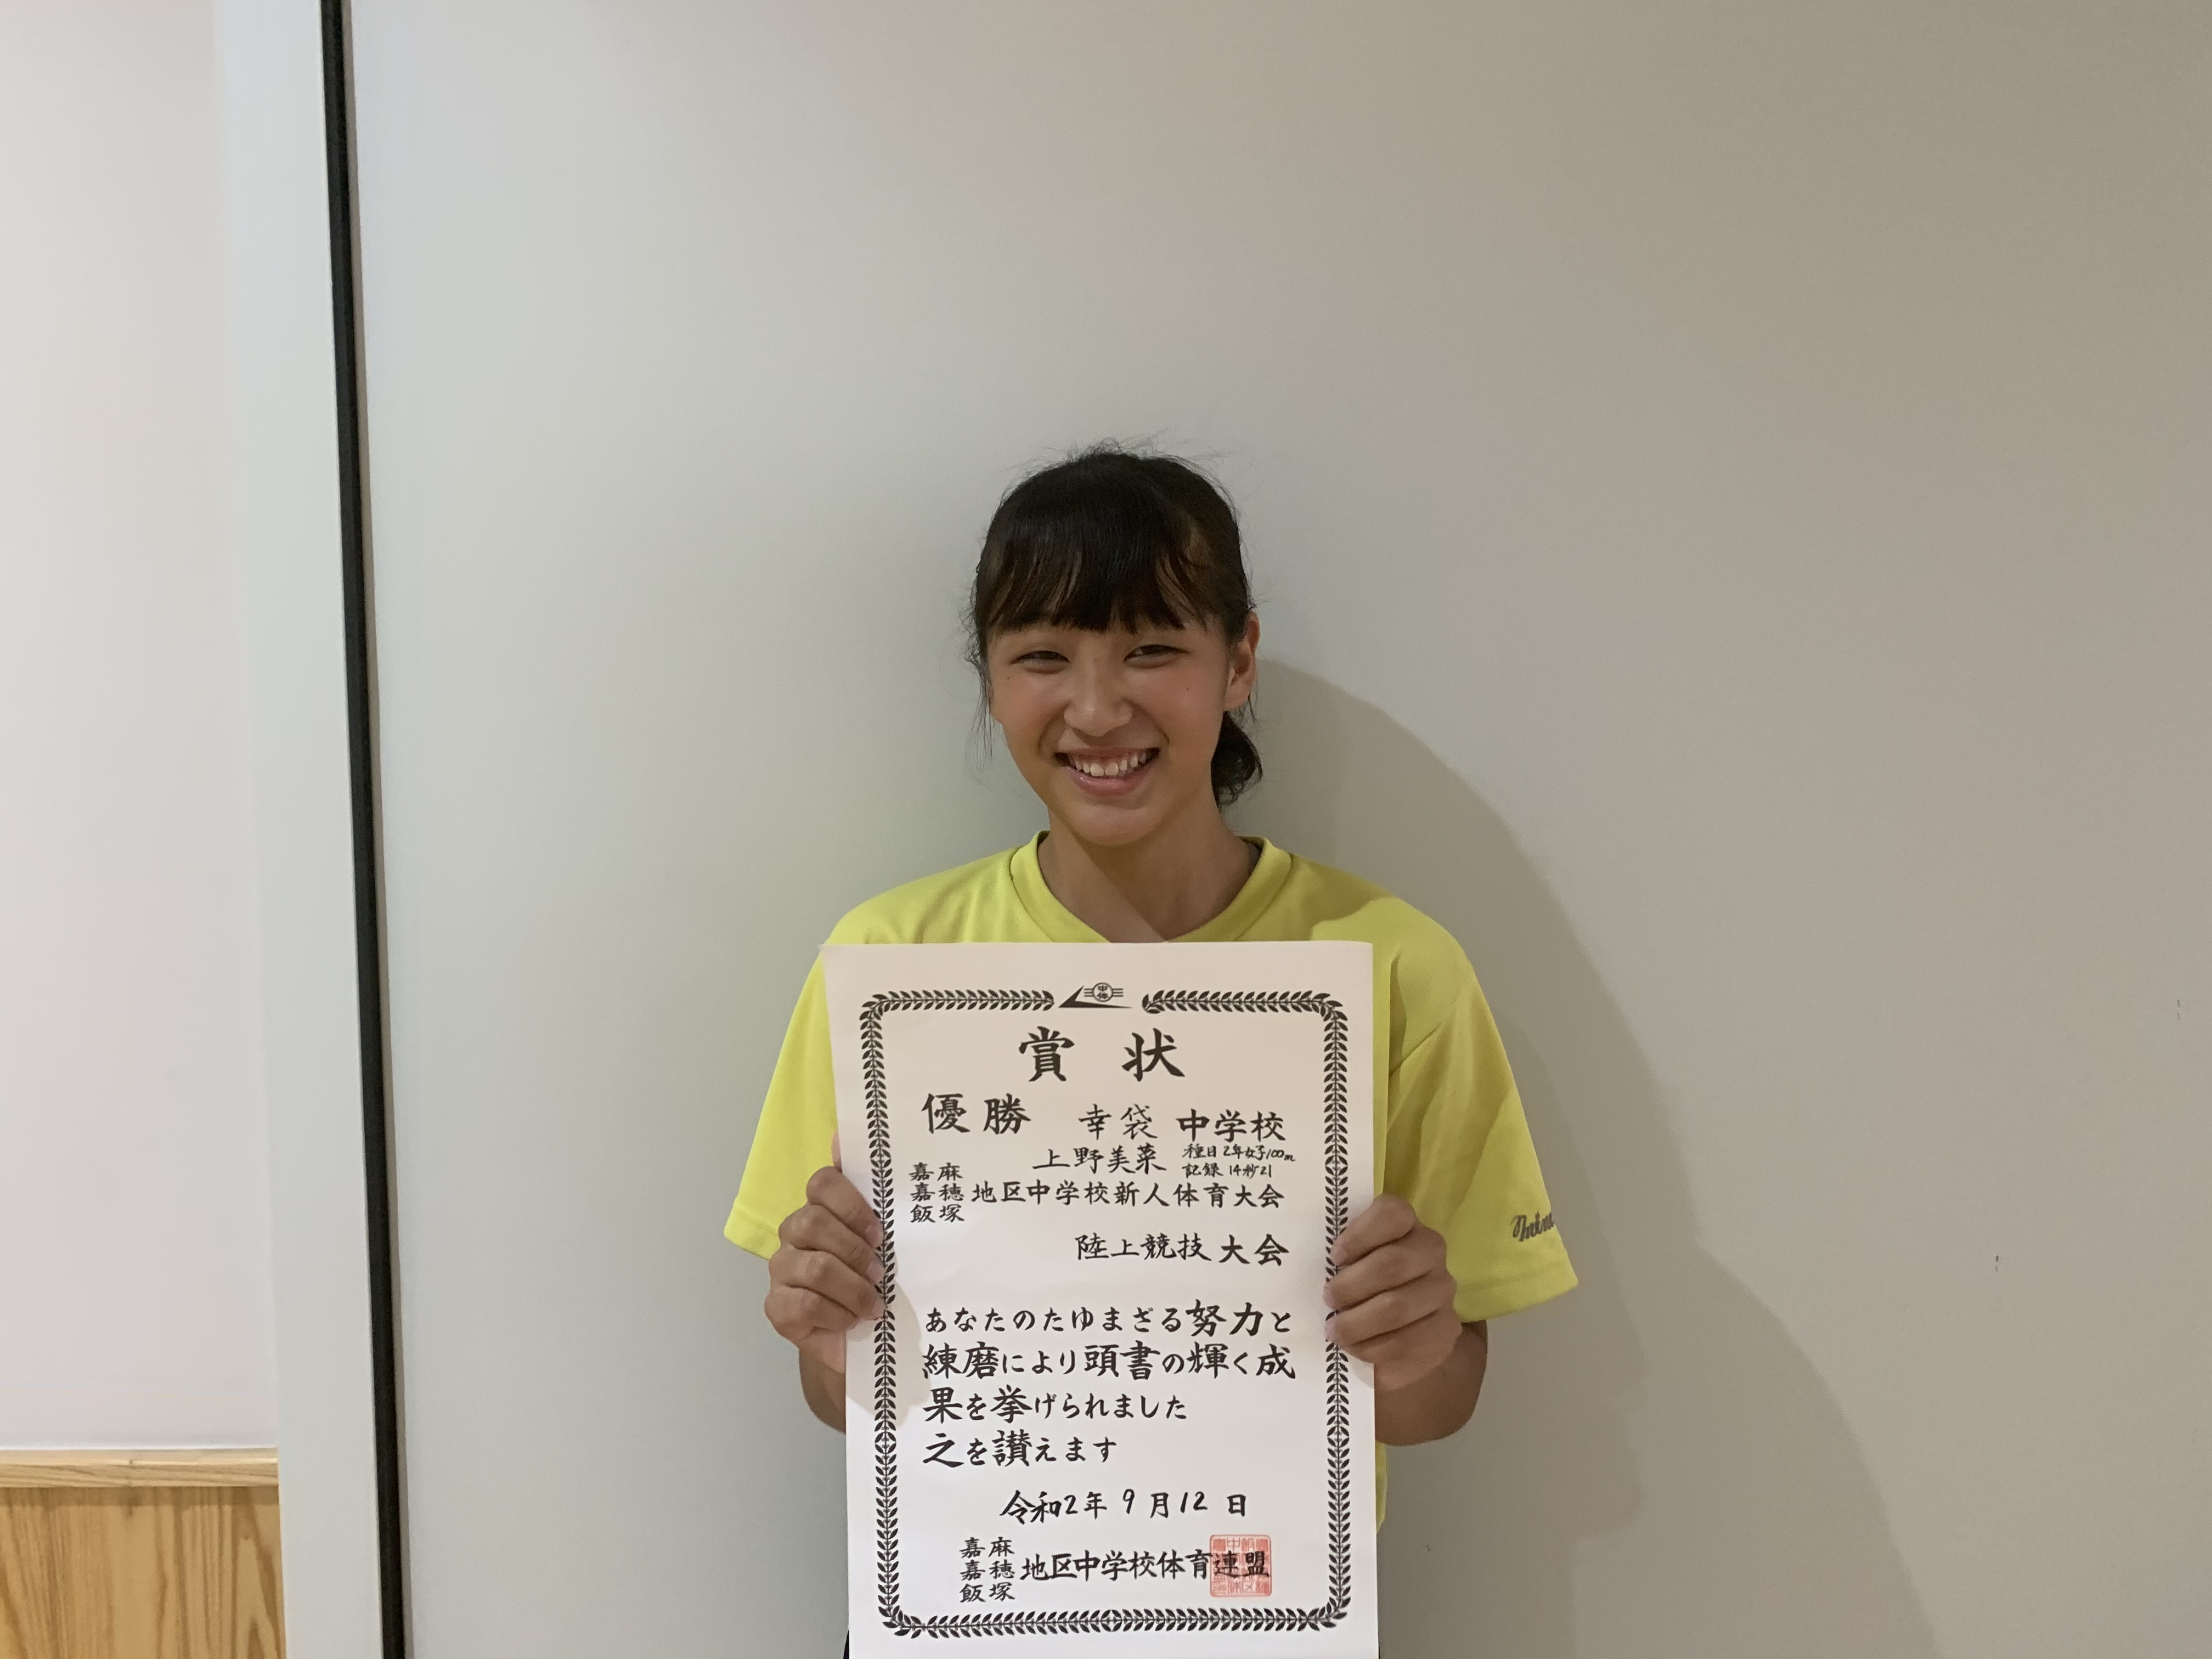 中体
賞状
優勝 幸袋 中学校
上野美菜 種目 2年女子100m
記録 14秒21
嘉麻
嘉穂 地区中学校新人体育大会
飯塚
陸上競技 大会
あなたのたゆまざる努力と
練磨により頭書の輝く成
果を挙げられました
之を讃えます
令和2年 9月12日
嘉麻
嘉穂 地区中学校体育連盟
飯塚